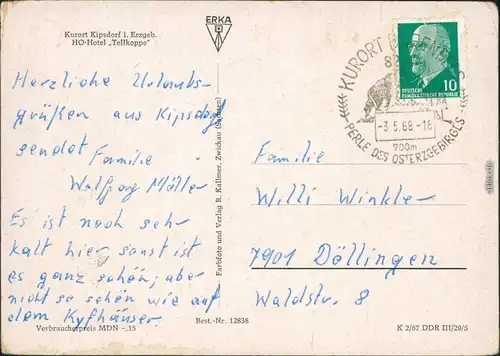 Kurort Kipsdorf i. Erzgeb.
HO-Hotel „Tellkoppe"
Herzliche Urlaubs-
grüßen aus Kipsdorf
sendet Familie
Wolfgang Möller
Es ist noch seh-
kalt hier sonst ist
es ganz schön, aber
nicht so schön wie auf
dem Kyfhäuser.
Verbraucherpreis MDN -,15
ERKA
Farbfoto und Verlag R. Kallmer, Zwickau (Sachsen)
Best.-Nr. 12838
KURORT
-3.5.68-18
700m
PERLE DES OSTERZGEBIRGES
DEUTSCHE
DEMOKRATISCHE REPUBLIK
10
Familie
Willi Winkler
7901 Döllingen
Waldstr. 8
K 2/67 DDR III/29/5